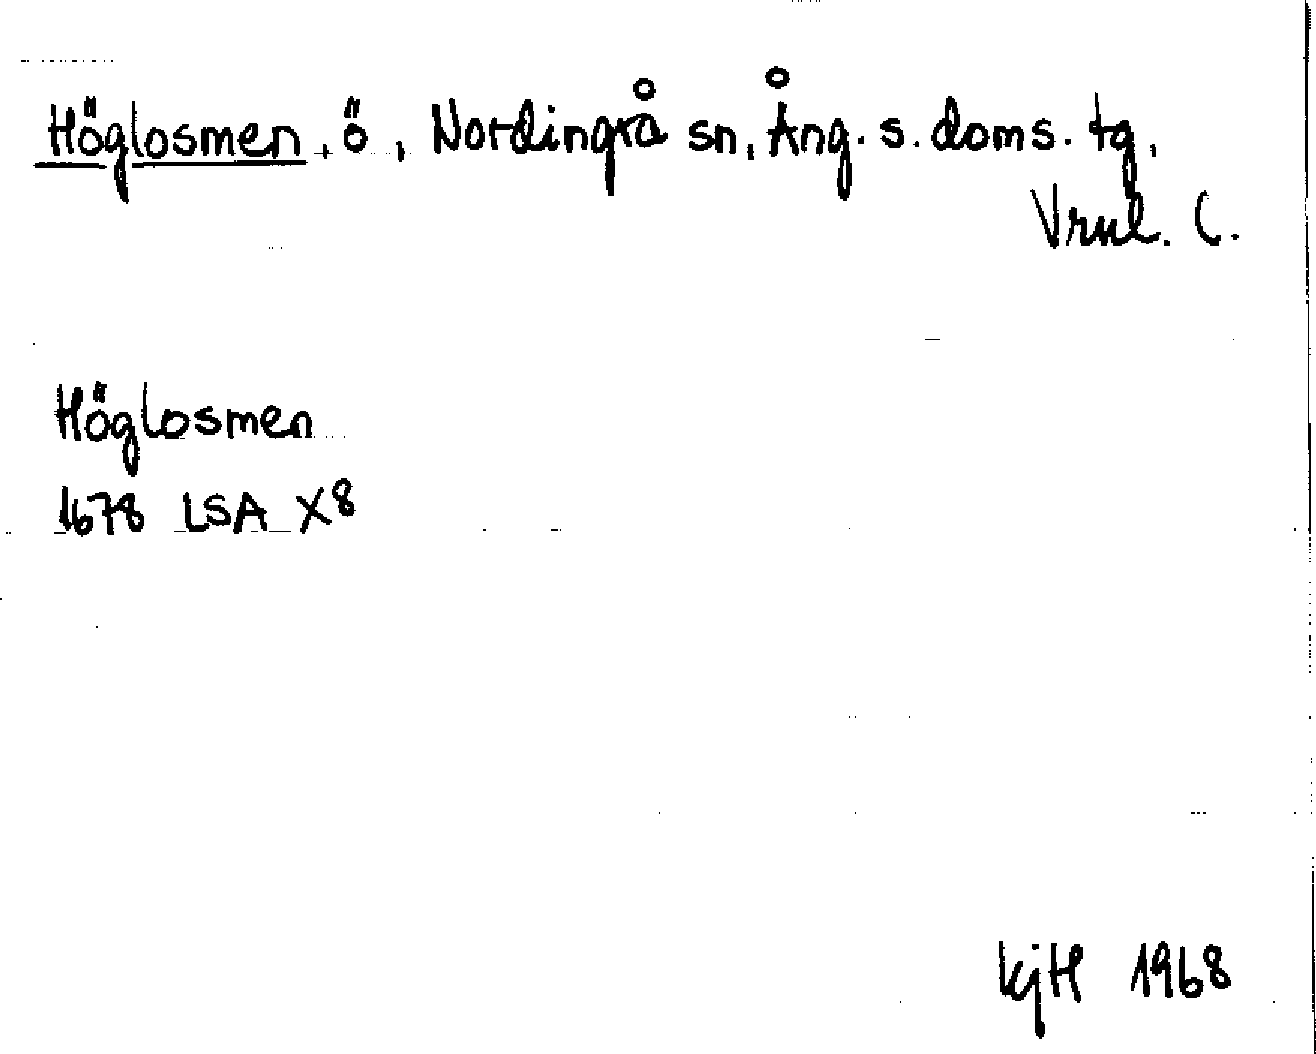 Höglosmen, ö, Nordingrå sn, Ång. s. doms. tg,
Vrnl. C.
Höglosmen
1678 LSA X8
kjH 1968